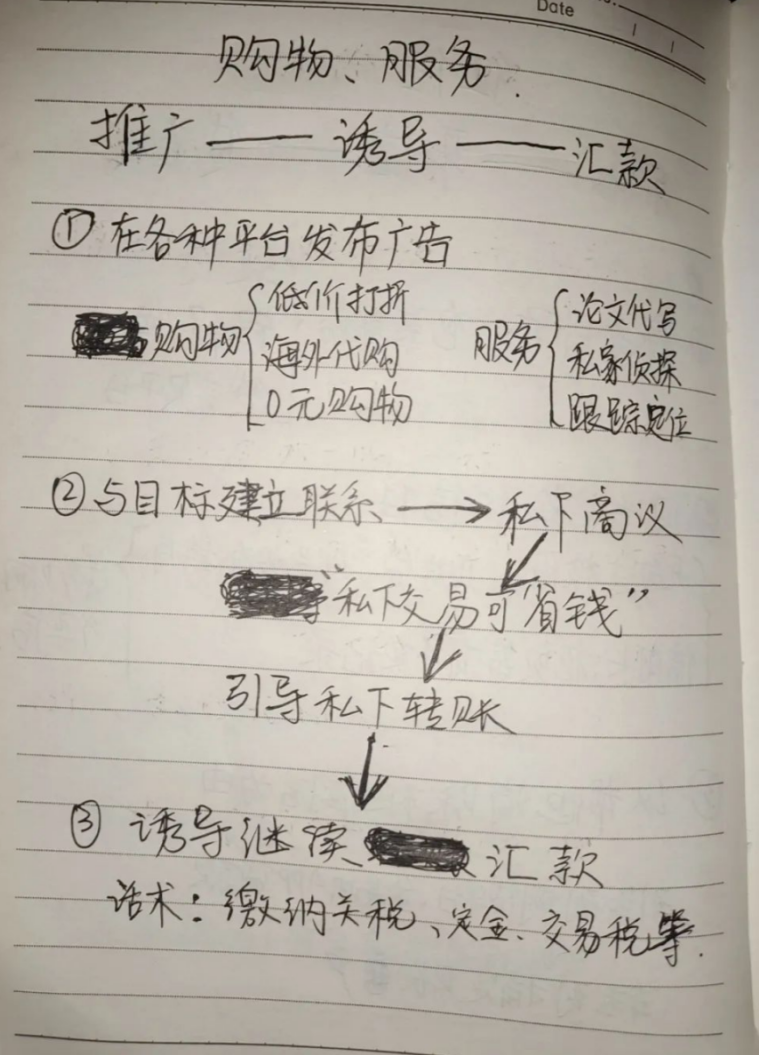 Date
购物、服务.
推广——诱导——汇款
①在各种平台发布广告
购物{低价打折 海外代购 0元购物
服务{论文代写 私家侦探 跟踪定位
②与目标建立联系→私下商议
“私下交易可省钱”
引导私下转账
③诱导继续汇款
话术：缴纳关税、定金、交易税等.